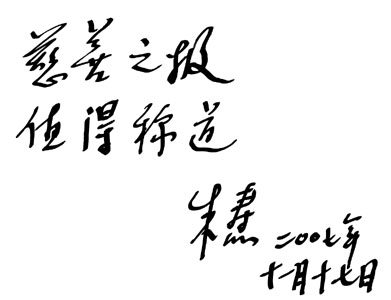 慈善之报
值得称道
朱焘 二〇〇七年
十月十七日